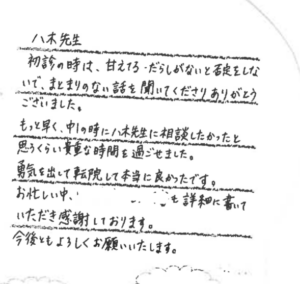 八木先生
初診の時は、甘えてる・だらしがないと否定をしな
いで、まとまりのない話を聞いてくださりありがとう
ございました。
もっと早く、中1の時に八木先生に相談したかったと
思うくらい貴重な時間を過ごせました。
勇気を出して転院して本当に良かったです。
お忙しい中、
も詳細に書いて
いただき感謝しております。
今後ともよろしくお願いいたします。